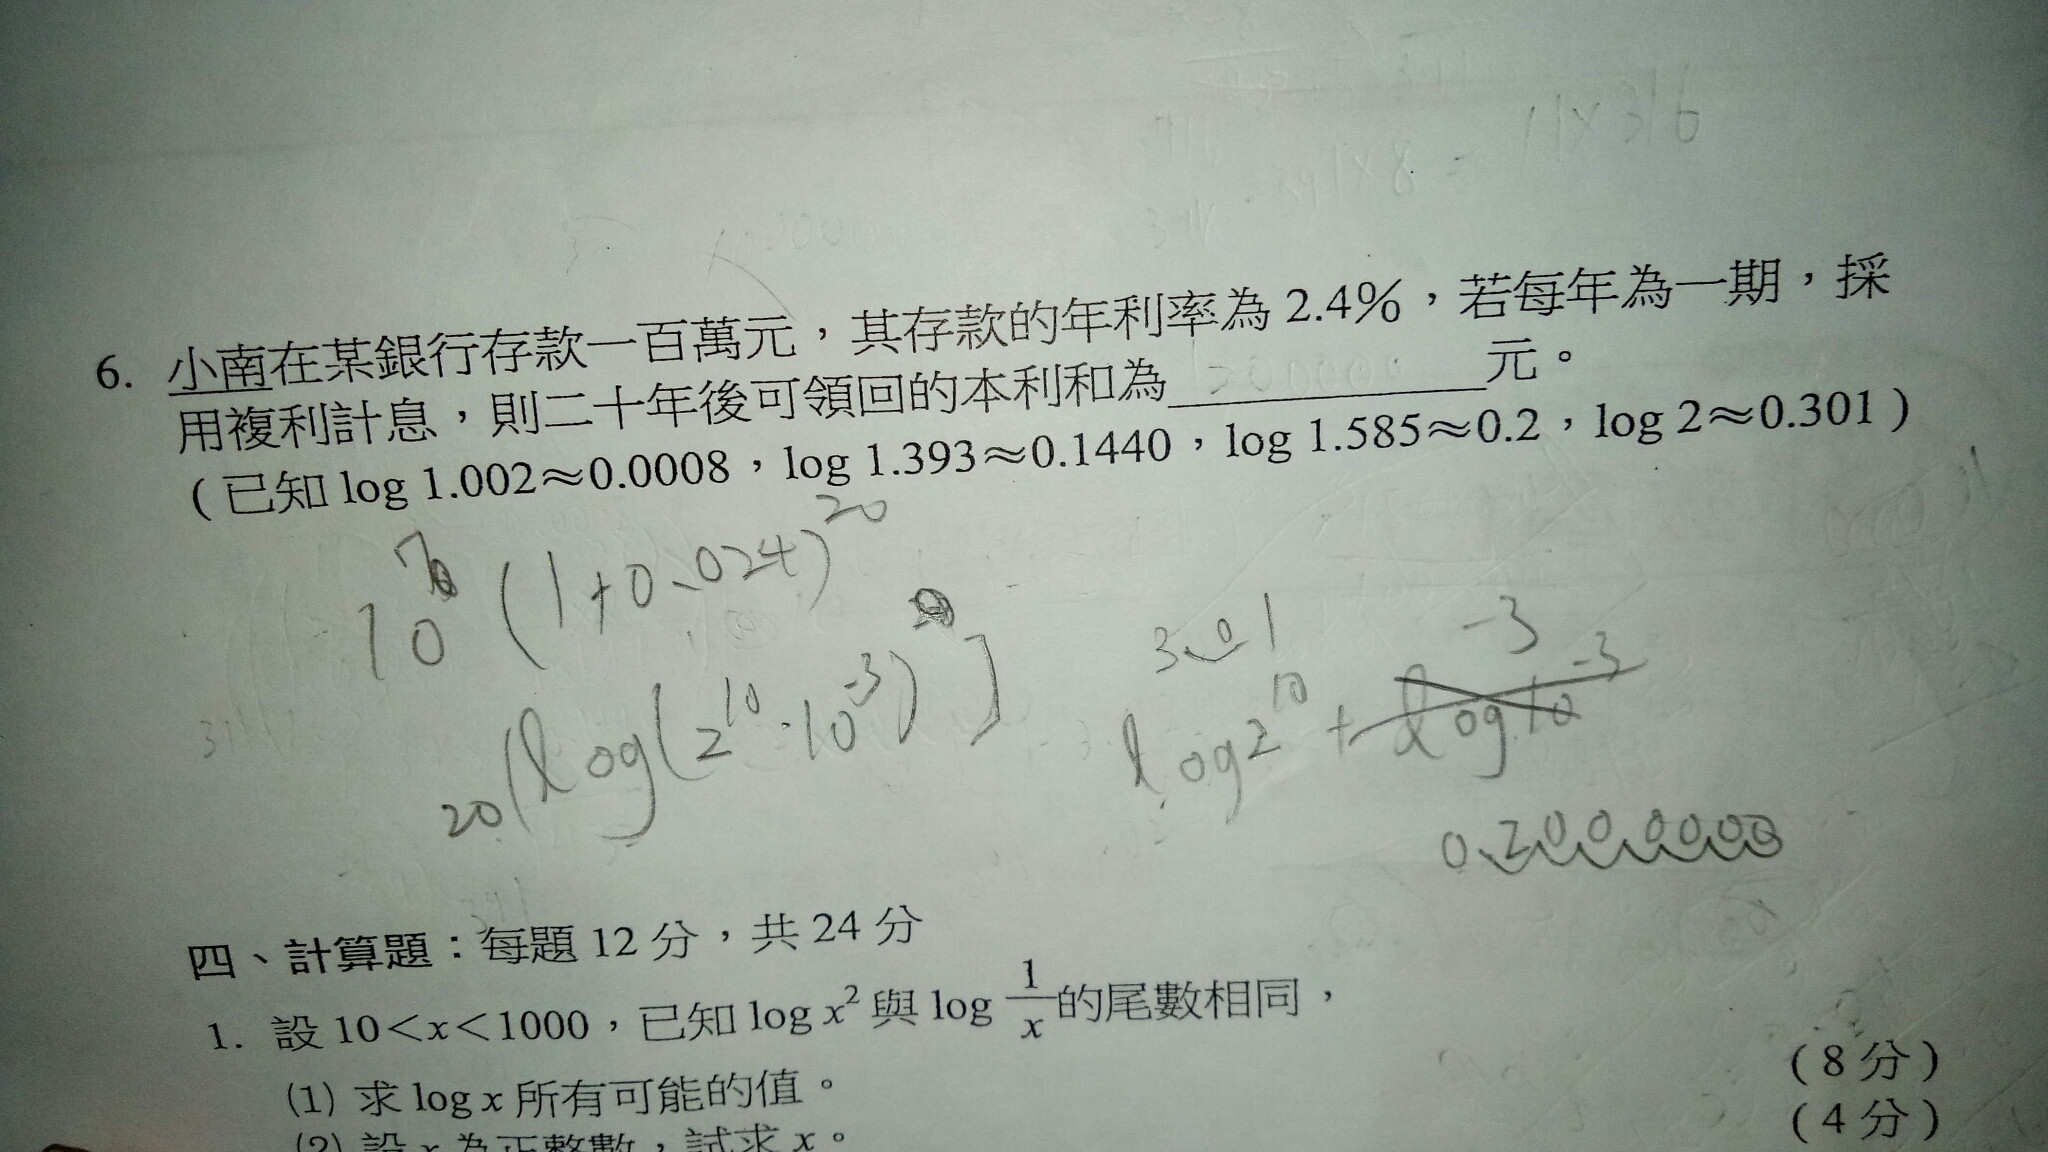 6. 小南在某銀行存款一百萬元，其存款的年利率為 2.4%，若每年為一期，採
用複利計息，則二十年後可領回的本利和為__________元。
(已知 log 1.002≈0.0008，log 1.393≈0.1440，log 1.585≈0.2，log 2≈0.301)
(1+0.024)^20
20[log(2^10·10^-3)]
3.01
-3
log2^10 + log10^-3
0.2000000
四、計算題：每題 12 分，共 24 分
1. 設 10<x<1000，已知 log x² 與 log 1/x 的尾數相同，
(1) 求 log x 所有可能的值。 (8 分)
(2) 設 x 為正整數，試求 x。 (4 分)